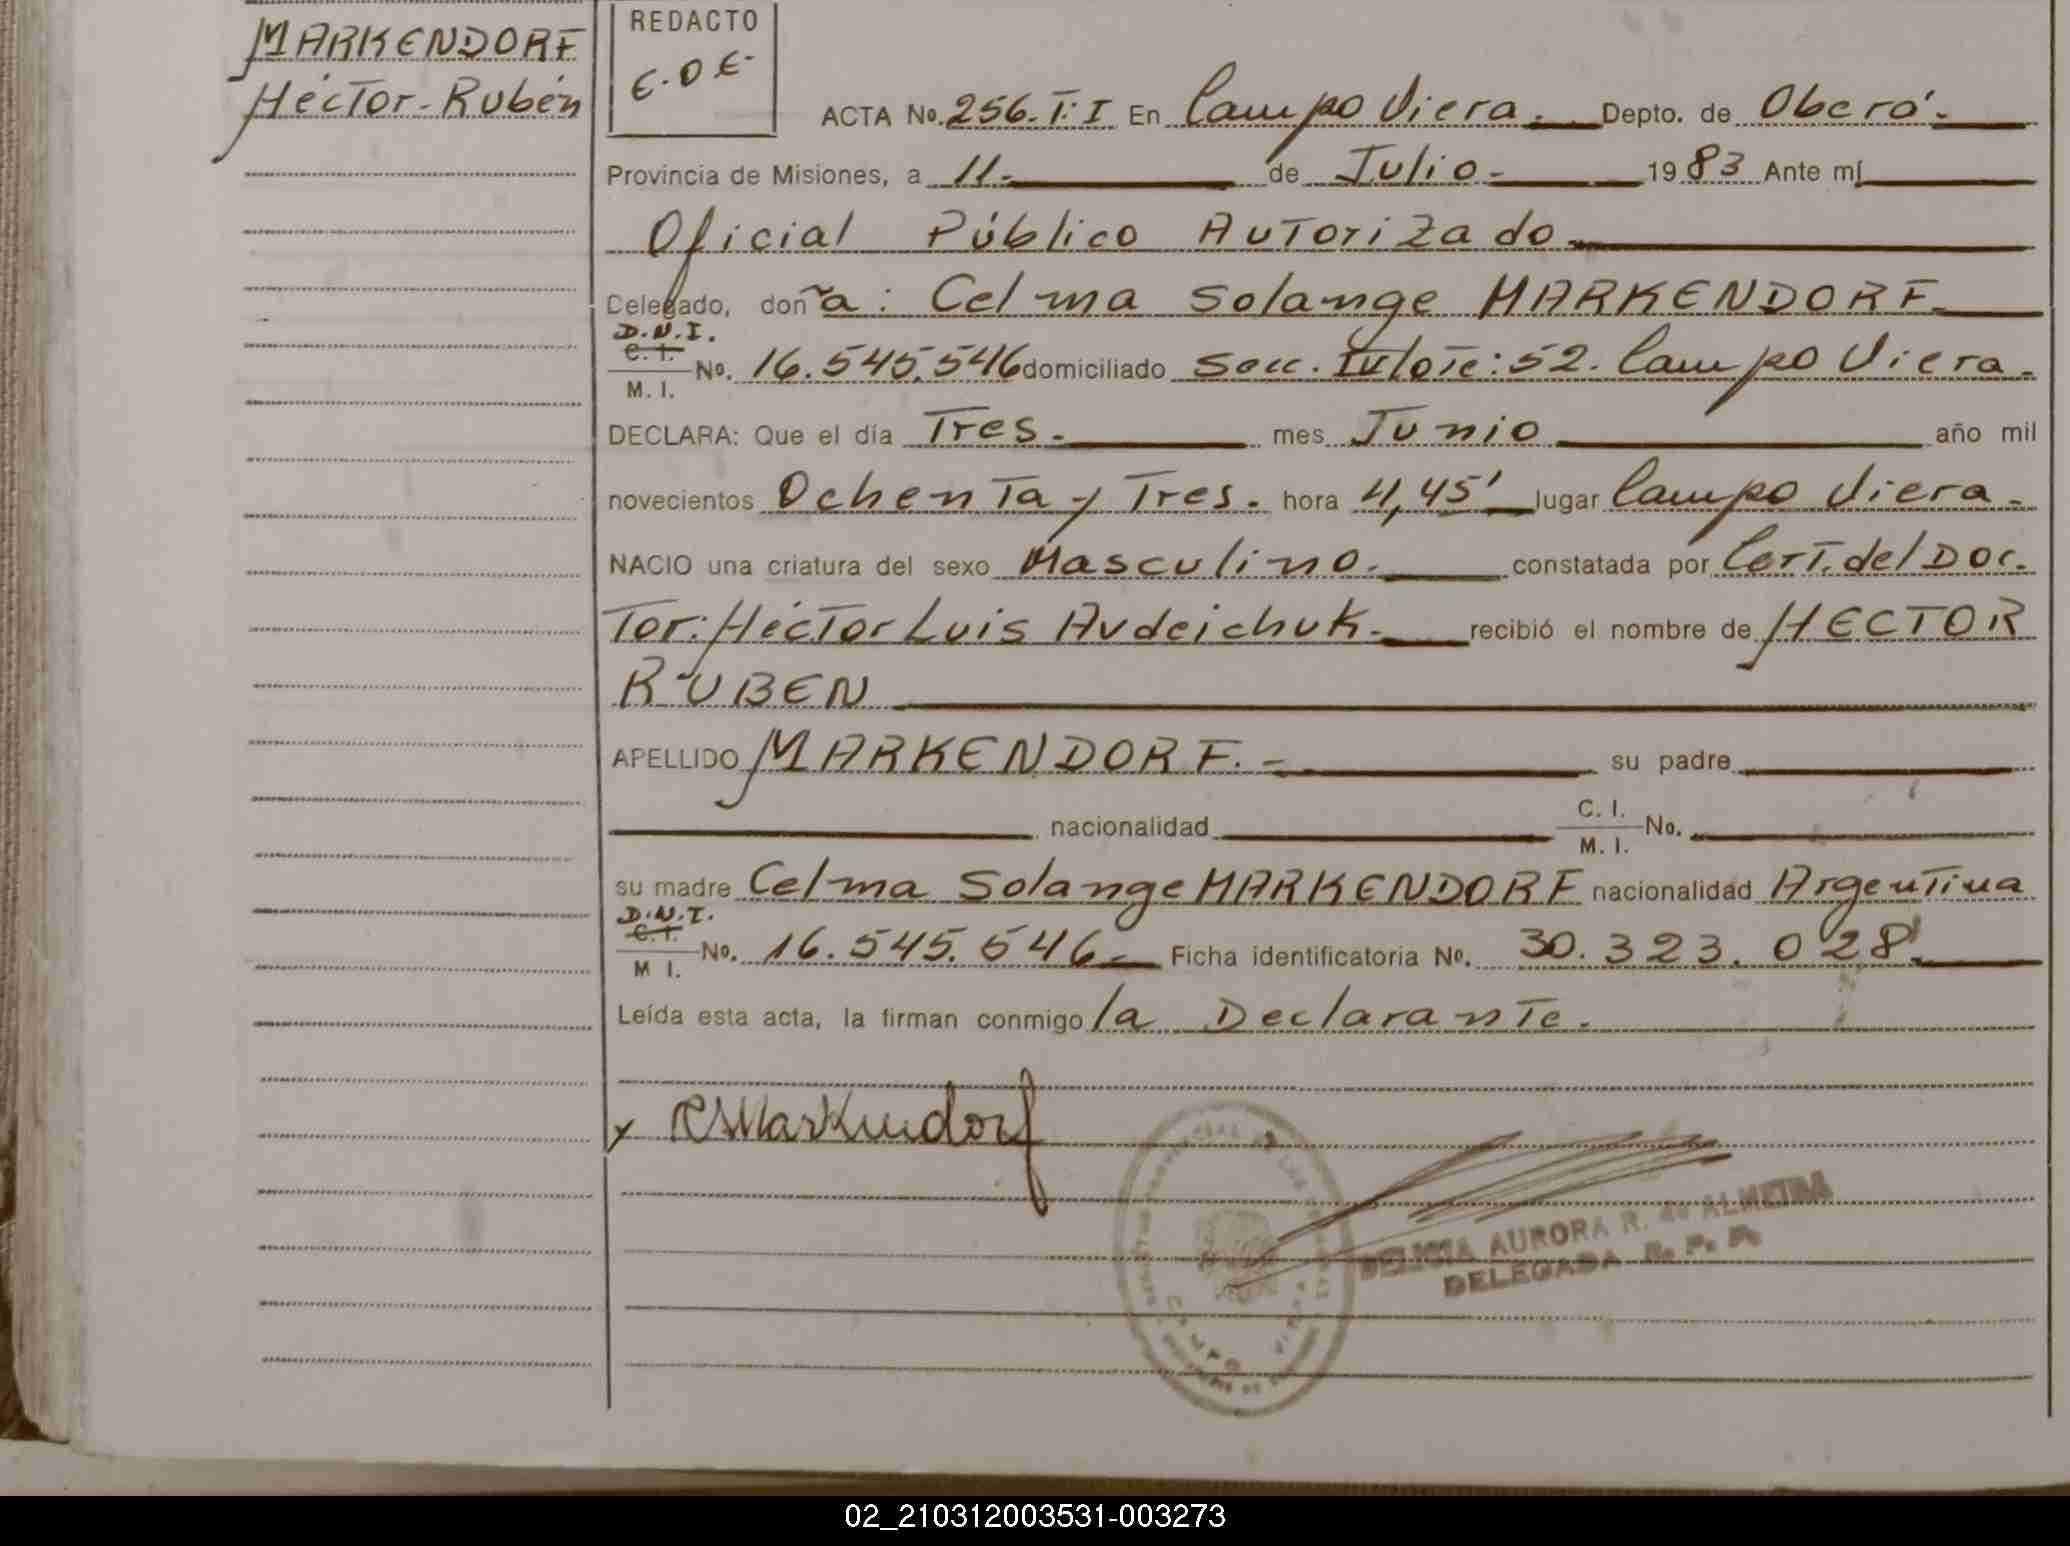 MARKENDORF
Héctor-Rubén
REDACTO
E.D.E.
ACTA No. 256.T:I En Campo Viera. Depto. de Oberá.
Provincia de Misiones, a 11. de Julio. 1983 Ante mí
Oficial Público Autorizado.
Delegado, doña: Celma Solange MARKENDORF
D.N.I.
C. I.
M. I.
No. 16.545.546 domiciliado Secc. IV lote: 52. Campo Viera.
DECLARA: Que el día Tres. mes Junio año mil
novecientos Ochenta y Tres. hora 4,45' lugar Campo Viera.
NACIO una criatura del sexo Masculino. constatada por Cert. del Doc.
Tor: Héctor Luis Avdeichuk. recibió el nombre de HECTOR
RUBEN
APELLIDO MARKENDORF. su padre
nacionalidad C. I.
M. I. No.
su madre Celma Solange MARKENDORF nacionalidad Argentina
D.N.I.
C. I.
M I.
No. 16.545.546 Ficha identificatoria No. 30.323.028
Leída esta acta, la firman conmigo la Declarante.
x CSMarkendorf
DELICIA AURORA R. de ALMEIDA
DELEGADA R. P. P.
CAMPO VIERA
02_210312003531-003273